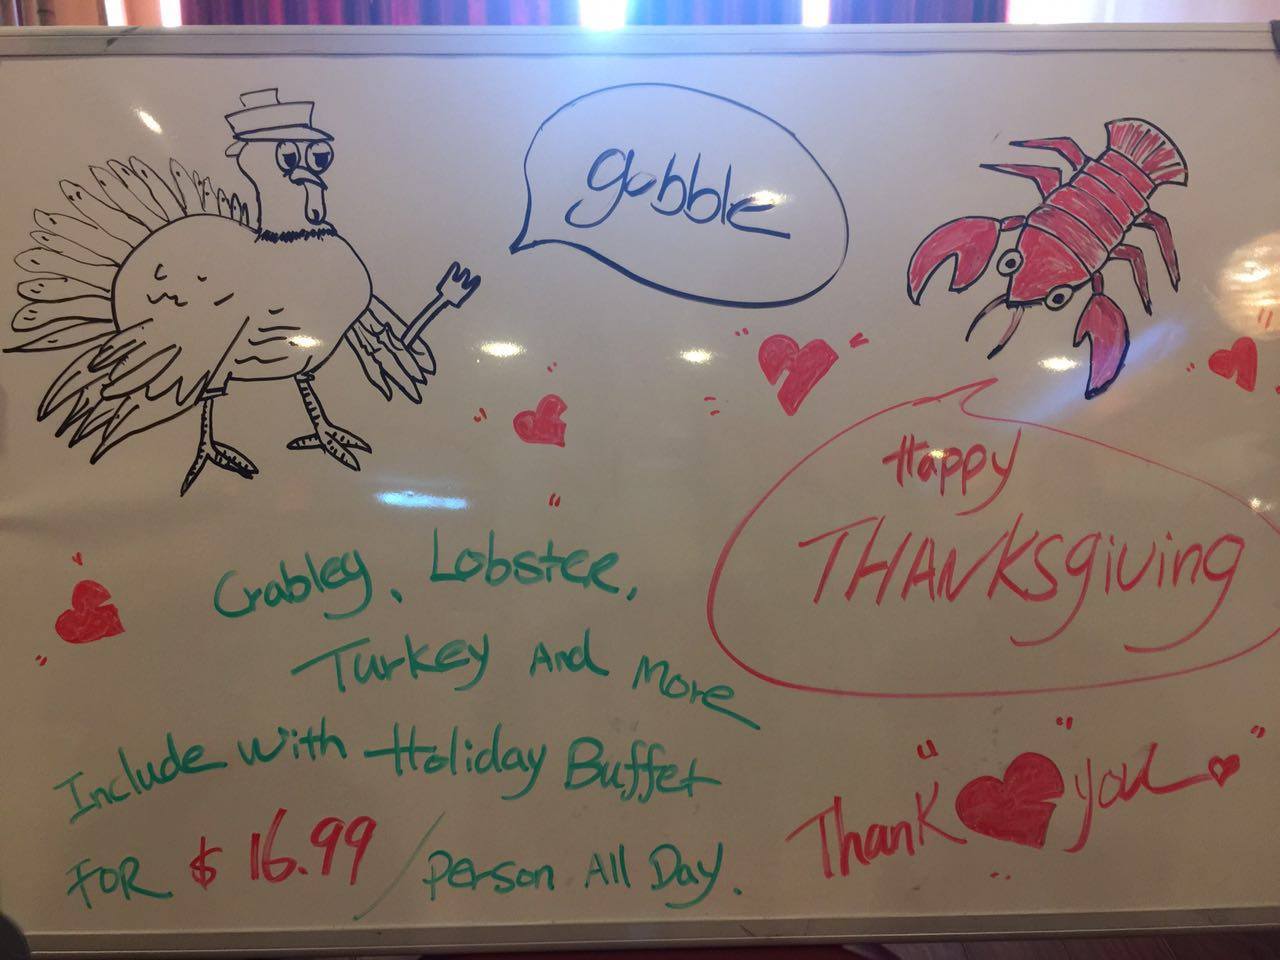 gobble
Happy
THANKSgiving
Crabley, Lobster,
Turkey And More
Include with Holiday Buffet
FOR $16.99/person All Day.
Thank you